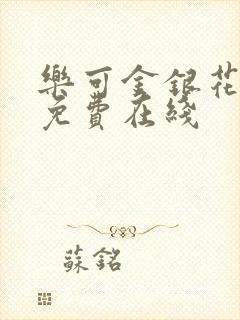 樂可金銀花
免費在綫
蘇銘